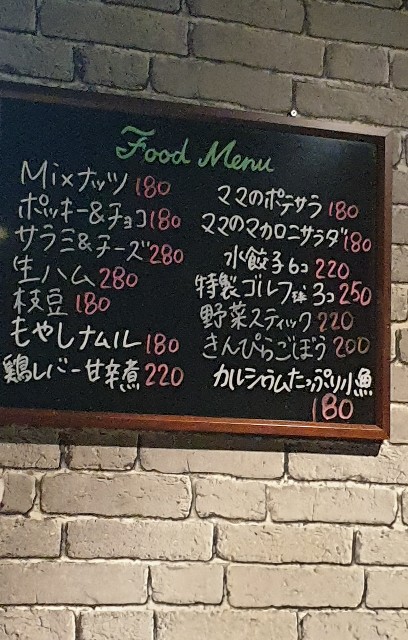 Food Menu
Mixナッツ 180
ポッキー&チョコ 180
サラミ&チーズ 280
生ハム 280
枝豆 180
もやしナムル 180
鶏レバー甘辛煮 220
ママのポテサラ 180
ママのマカロニサラダ 180
水餃子6コ 220
特製ゴルフ球3コ 250
野菜スティック 220
きんぴらごぼう 200
カルシウムたっぷり小魚
180